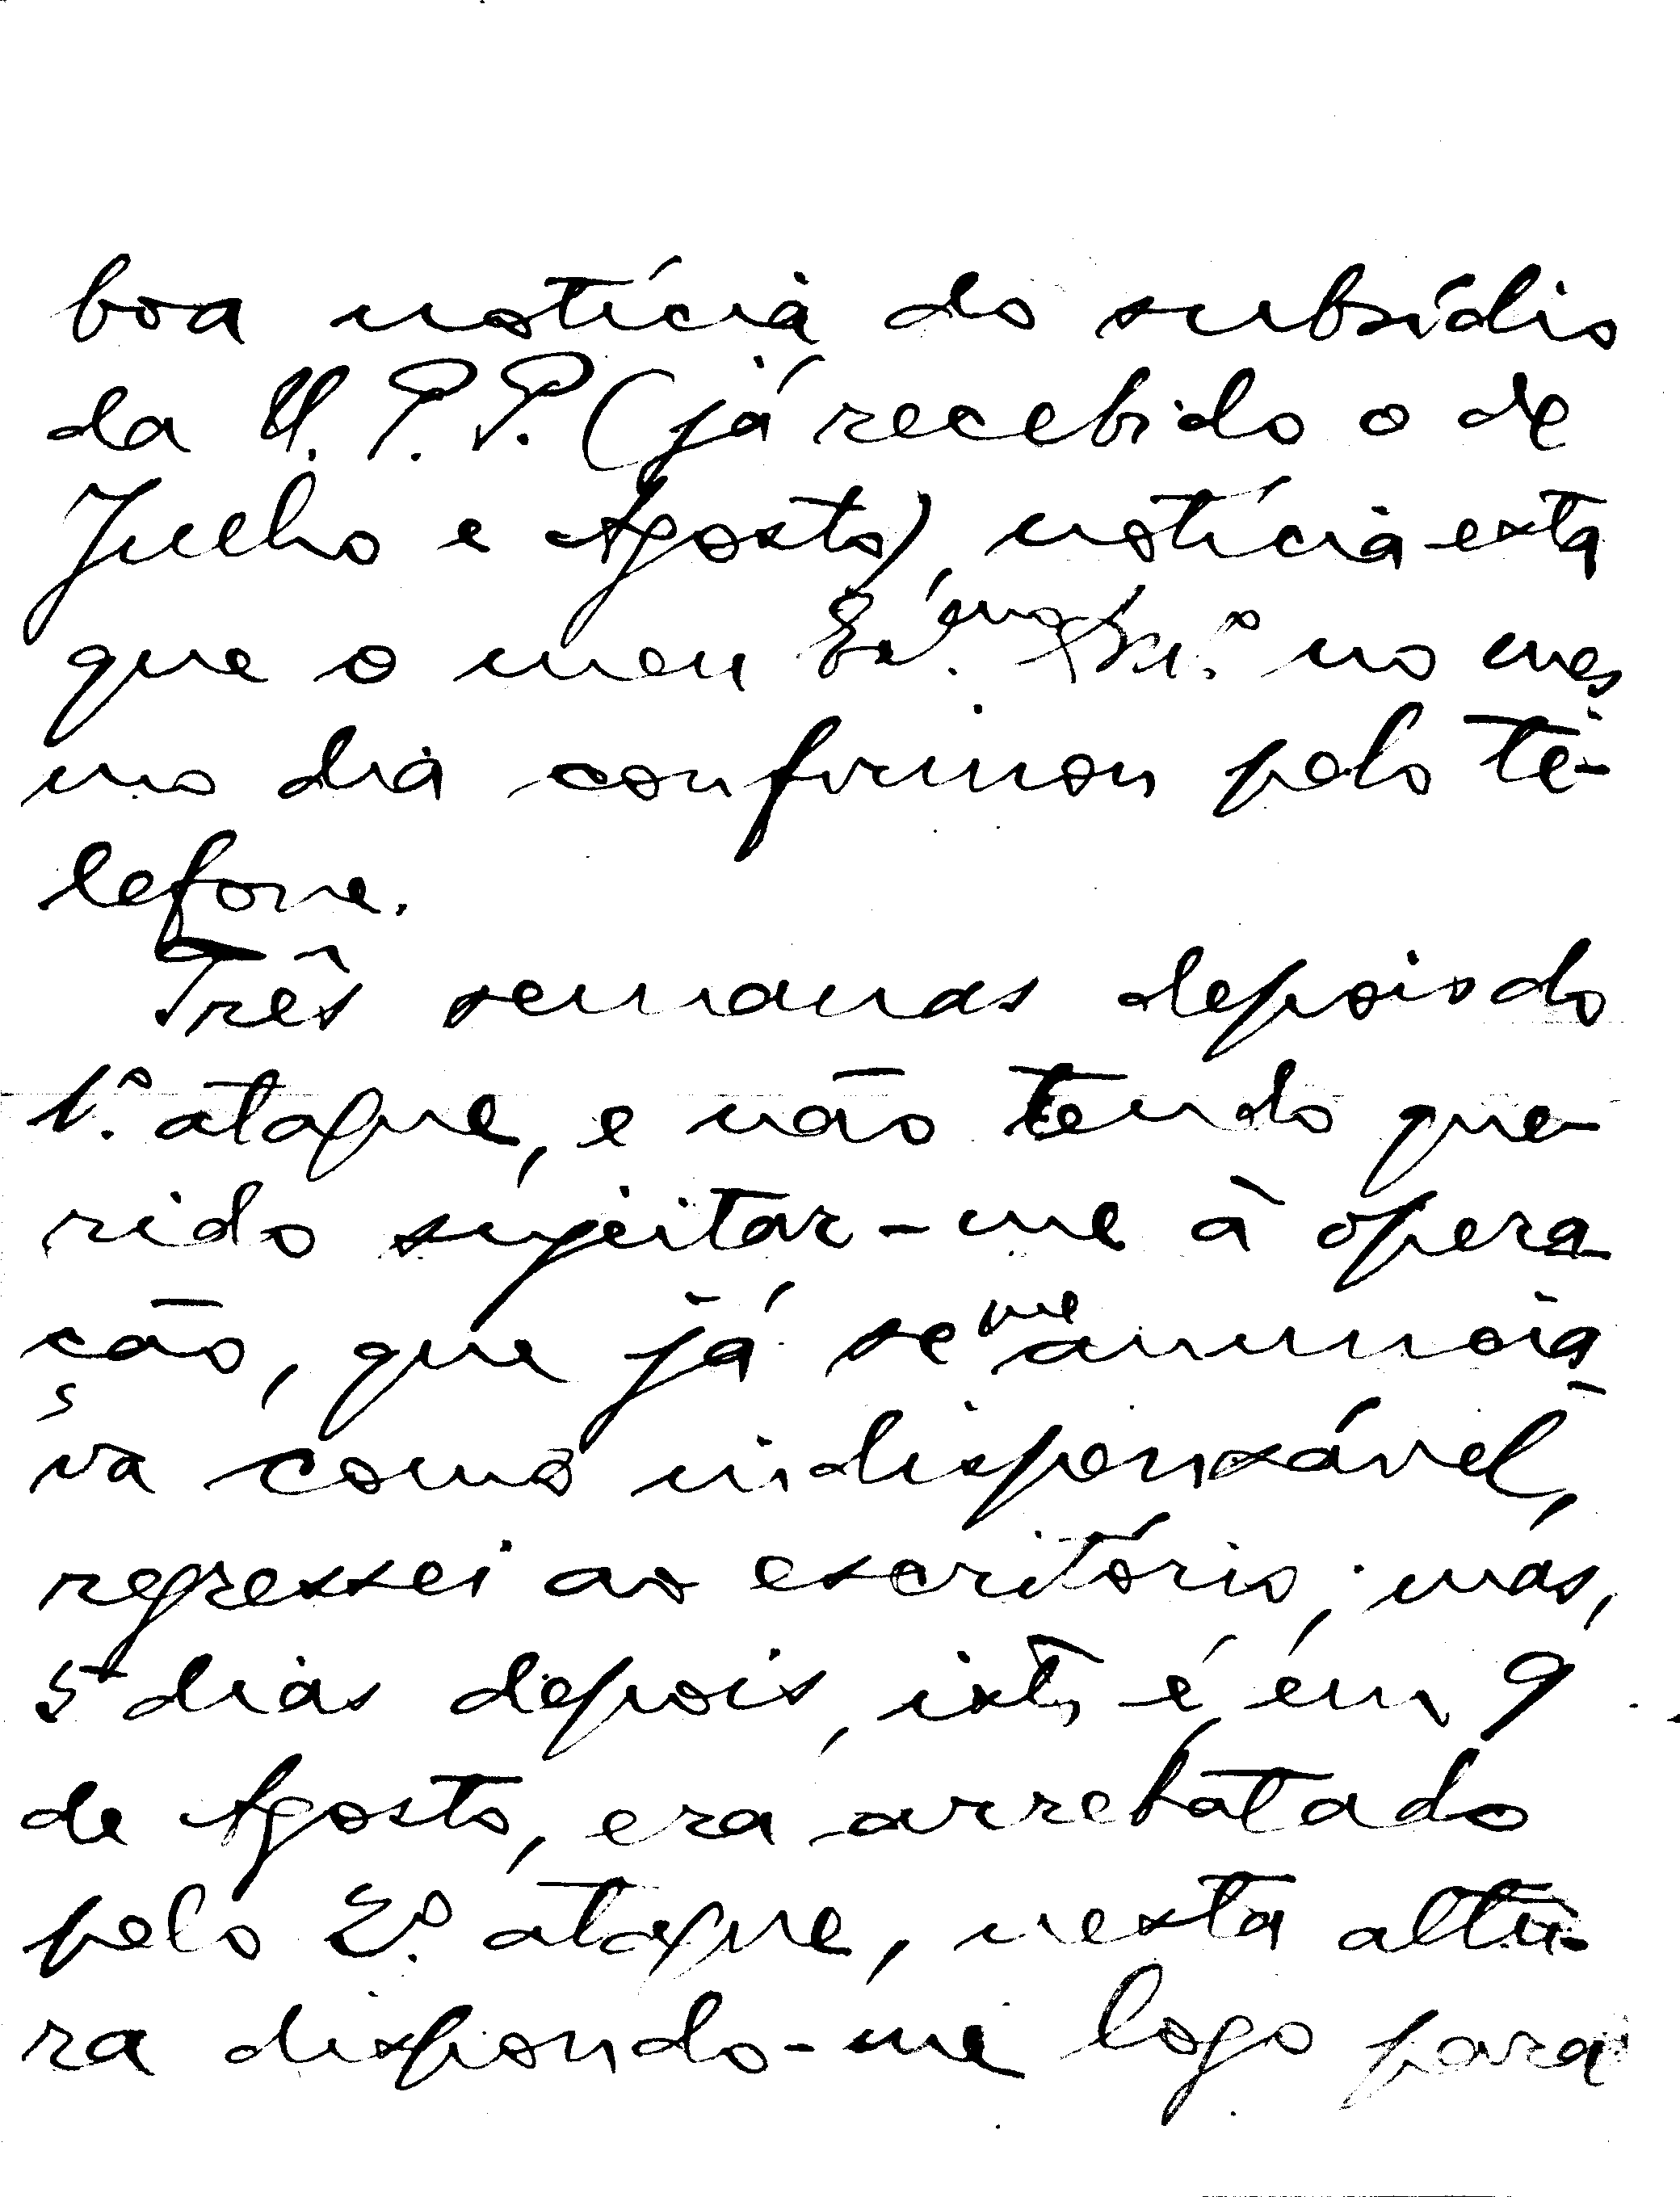 boa notícia do subsídio
da U. P. P. (já recebido o de
Julho e Agosto), notícia esta
que o meu Ex.mo no mes
mo dia confirmou pelo te-
lefone.
Três semanas depois do
1.º ataque, e não tendo que-
rido sujeitar-me à opera-
ção, que já se me anuncia-
va como indispensável,
regressei ao escritório; mas,
5 dias depois, isto é, em 9
de Agosto, era arrebatado
pelo 2.º ataque, nesta altu-
ra dispondo-me logo para